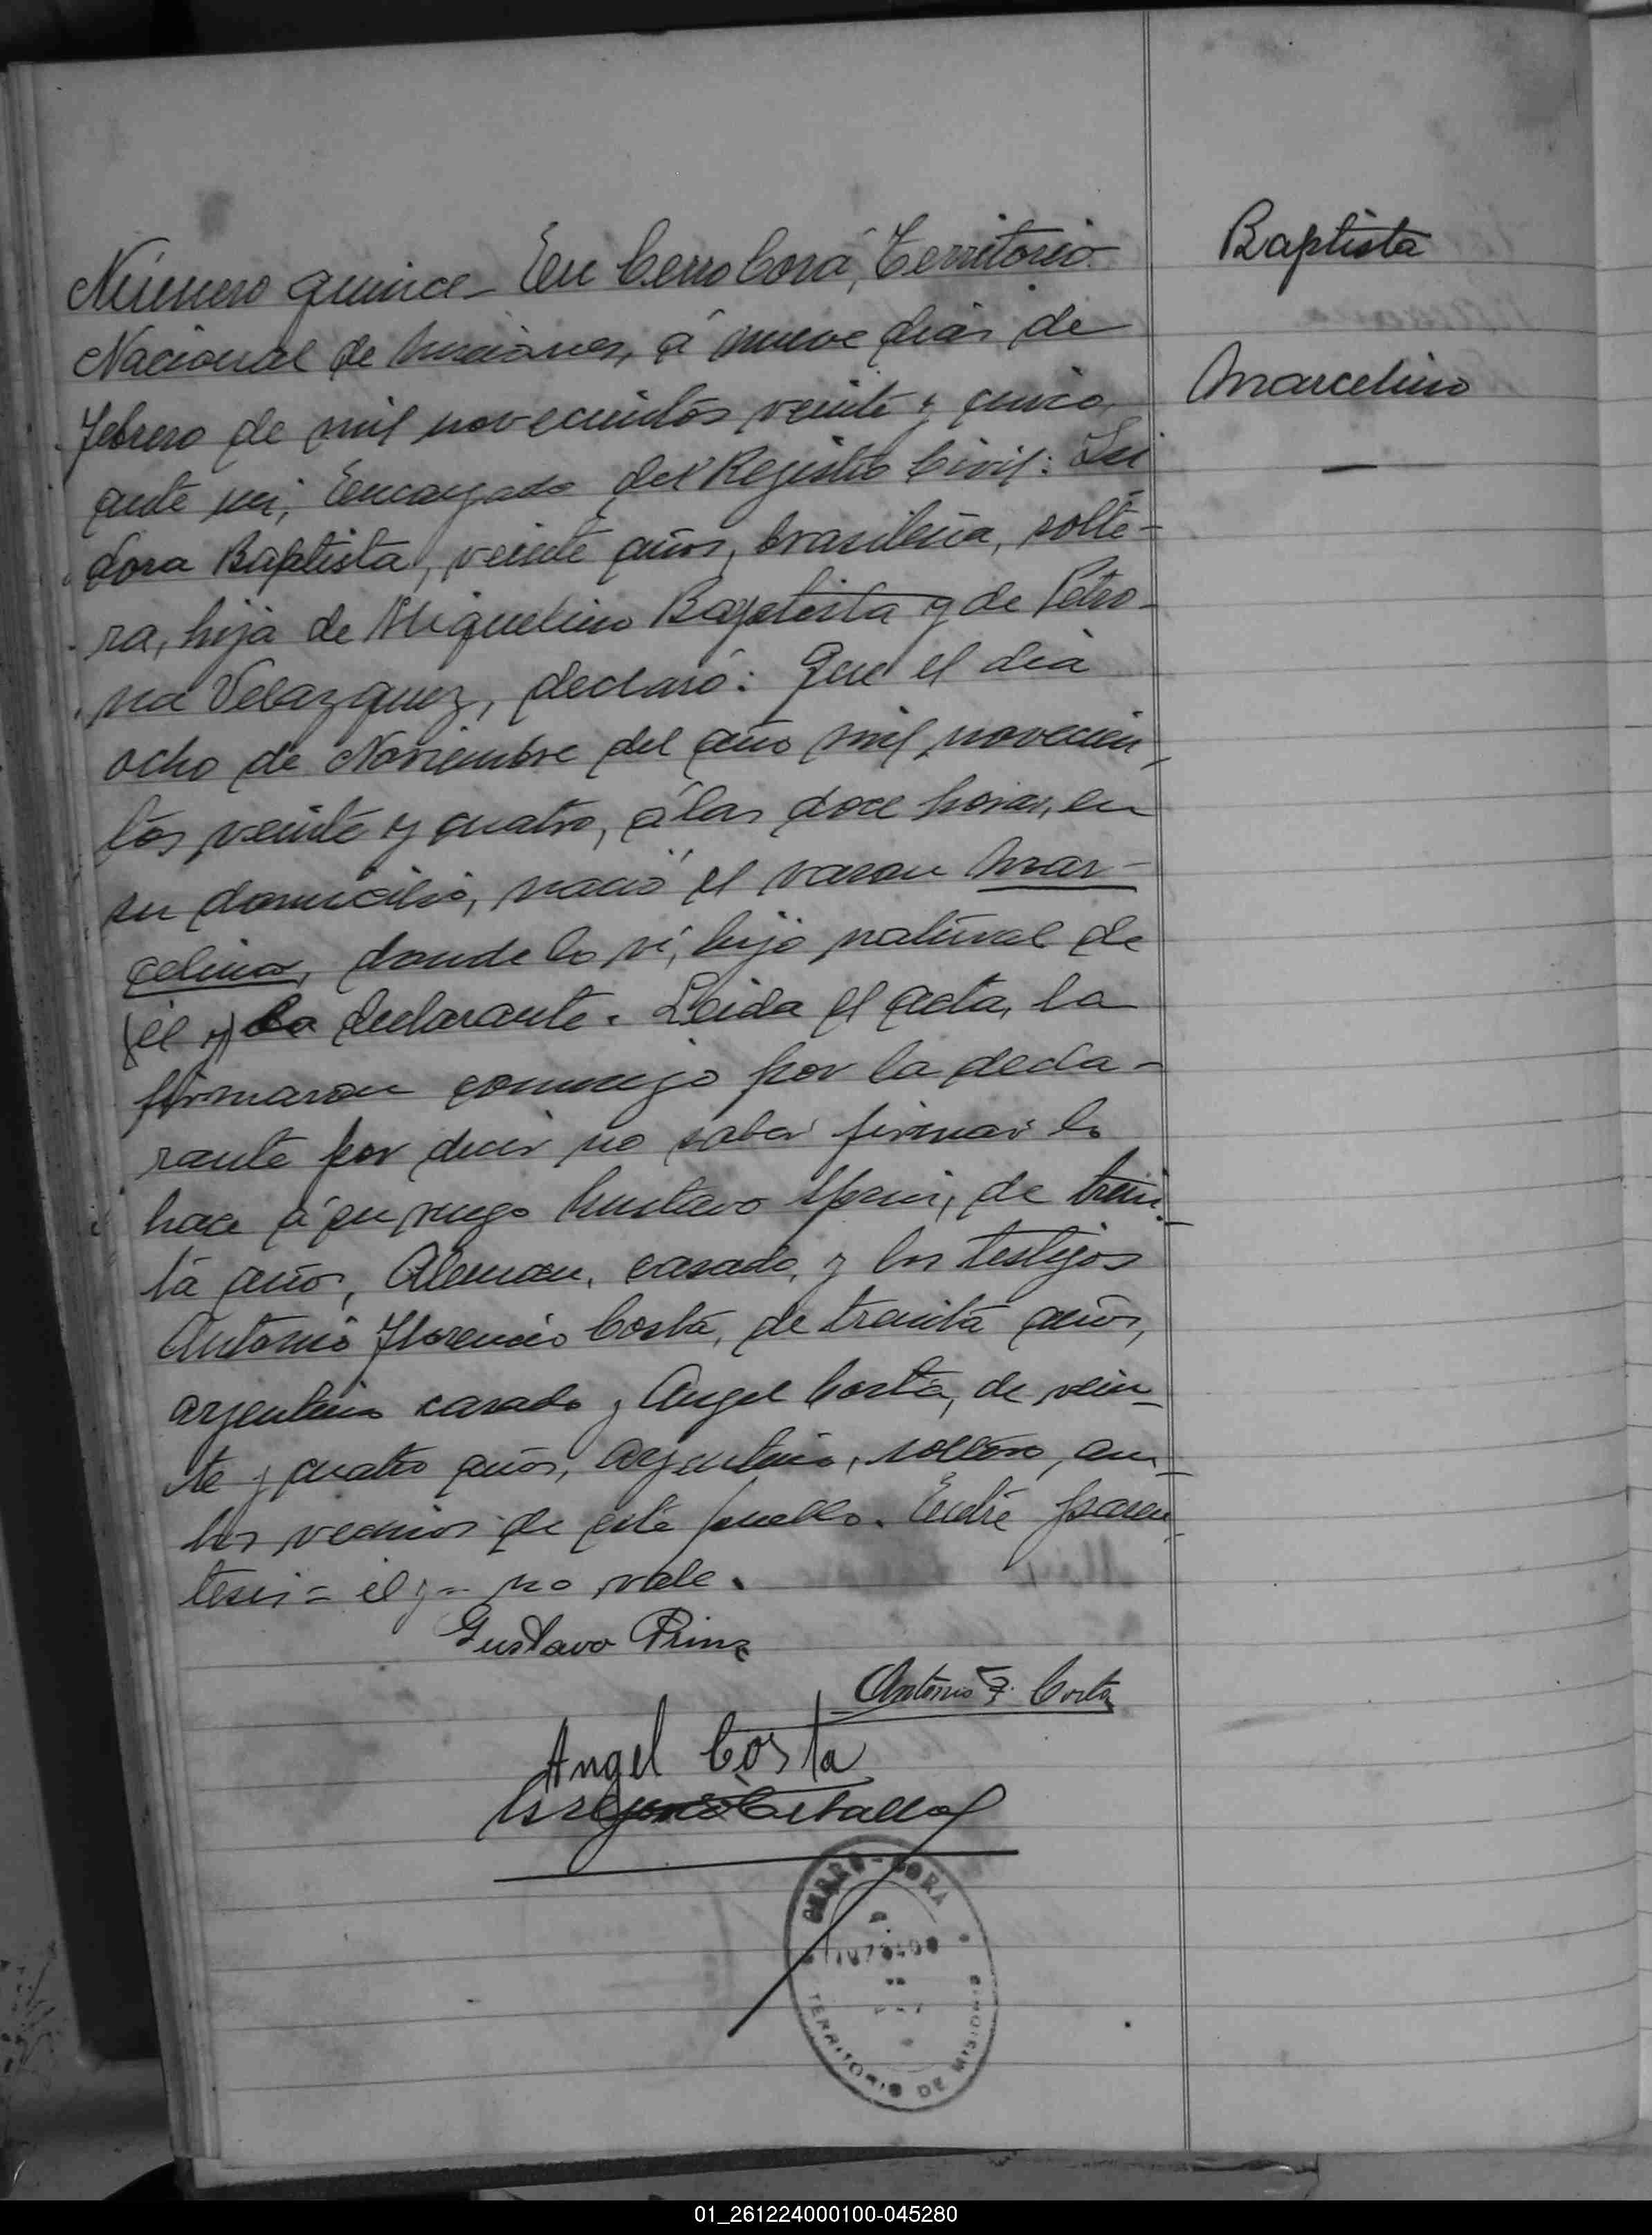 Número quince - En Cerro Corá, Territorio
Baptista
Nacional de Misiones, á nueve dias de
Marcelino
Febrero de mil novecientos veinte y cinco,
ante mi, Encargado del Registro Civil: Isi
dora Baptista, veinte años, brasileña, solte-
ra, hija de Miguelino Baptista y de Petro-
na Velazquez, declaró: Que el dia
ocho de Noviembre del año mil novecien-
tos veinte y cuatro, á las doce horas, en
su domicilio, nació el varon Mar-
celino, donde lo ví, hijo natural de
(él y) la declarante. Leida el acta, la
firmaron conmigo por la decla-
rante por decir no saber firmar lo
hace á su ruego Gustavo de trein-
ta años, Aleman, casado, y los testigos
Antonio Florencio Costa, de treinta años,
argentino casado y Angel Costa, de vein-
te y cuatro años, argentino, soltero, am-
bos vecinos de este pueblo. Entre paren-
tesis = él y = no vale.
Gustavo Prinz
Antonio F. Costa
Angel Costa
Ceballos
CERRO-CORA
TERRITORIO DE MISIONES
01_261224000100-045280